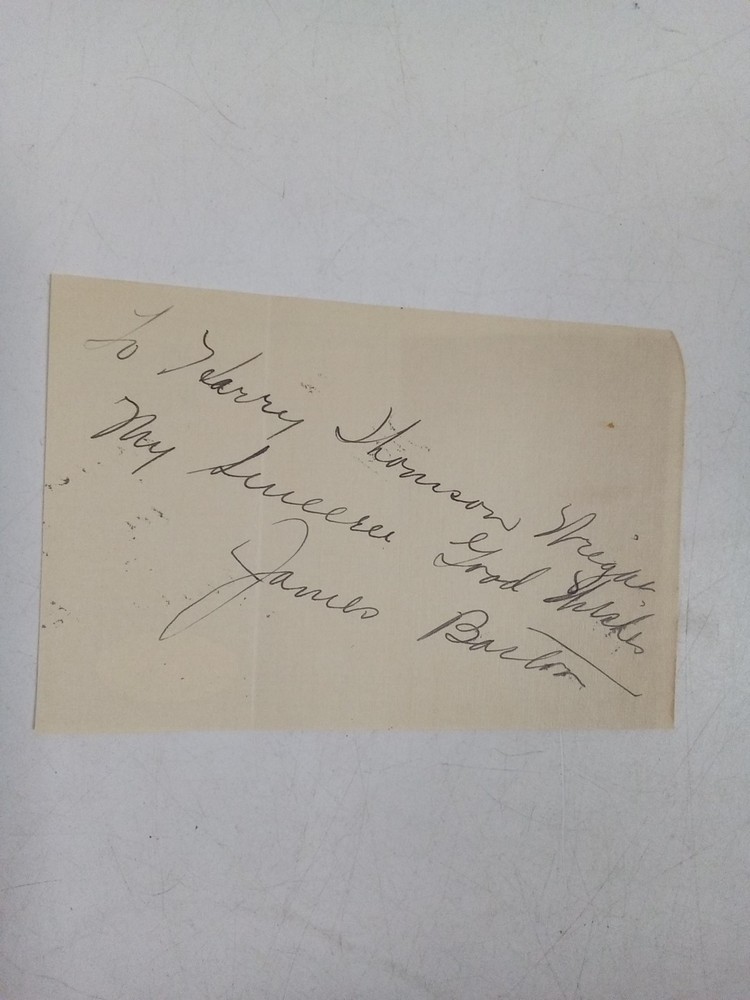 To Harry Thomson
My Sincere Good Wishes
James Barton